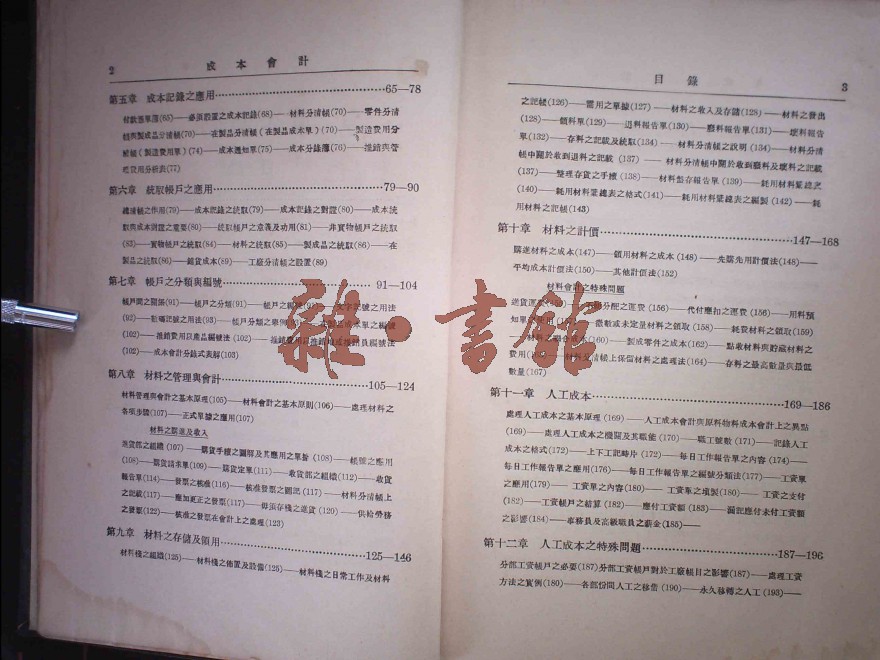 2 成本會計
第五章 成本記錄之應用 65—78
材料分清帳(70)——零件分清
帳與製成品分清帳(70)——在製品分清帳(在製品成本單)(70)——製造費用分
(製造費用單)(74)——成本通知單(75)——成本分錄簿(76)——推銷與管
理費用分析表(77)
第六章 統馭帳戶之應用 79—90
總清帳之作用(79)——成本記錄之統馭(79)——成本記錄之對證(80)——成本統
馭與成本測證之重要(80)——統馭帳戶之意義及功用(81)——非實物帳戶之統馭
(83)——實物帳戶之統馭(84)——材料之統馭(85)——製成品之統馭(86)——在
製品之統馭(86)——銷貨成本(89)——工廠分清帳之設置(89)
第七章 帳戶之分類與編號 91—104
帳戶間之關係(91)——帳戶之分類(91)——帳戶之
記號之用法
(92)——記號之用法(93)——帳戶分類之舉例
成本單之編號
——推銷費用以產品編號法(102)——推銷費用以
編號法
(102)——成本會計分錄式表解(103)
第八章 材料之管理與會計 105—124
材料管理與會計之基本原理(105)——材料會計之基本原則(106)——處理材料之
各項步驟(107)——正式單據之應用(107)
材料之購進及收入
進貨部之組織(107)——購貨手續之圖解及其應用之單據(108)——帳號之應用
(108)——購貨請求單(109)——購貨定單(111)——收貨部之組織(112)——收貨
報告單(114)——發票之核准(116)——核准發票之圖記(117)——材料分清帳上
之記載(117)——應加更正之發票(117)——毋須存棧之進貨(120)——供給勞務
之發票(122)——核准之發票在會計上之處理(123)
第九章 材料之存儲及領用 125—146
材料棧之組織(125)——材料棧之佈置及設備(125)——材料棧之日常工作及材料
目錄 3
之記帳(126)——需用之單據(127)——材料之收入及存儲(128)——材料之發出
(128)——領料單(129)——退料報告單(130)——廢料報告單(131)——壞料報告
單(132)——存料之記載及統馭(134)——材料分清帳之說明(134)——材料分清
帳中關於收到退料之記載(137)——材料分清帳中關於收到廢料及壞料之記載
(137)——整理存貨之手續(138)——材料盤存報告單(139)——耗用材料彙總表
(140)——耗用材料彙總表之格式(141)——耗用材料彙總表之編製(142)——耗
用材料之記帳(143)
第十章 材料之計價 147—168
購進材料之成本(147)——領用材料之成本(148)——先購先用計價法(148)——
平均成本計價法(150)——其他計價法(152)
材料會計之特殊問題
進貨運費
分配之運費(156)——代付應扣之運費(156)——用料預
知單之
——微數或未定量材料之領取(158)——耗費材料之領取(159)
——材料之組合成本(160)——製成零件之成本(162)——點收材料與貯藏材料之
費用
材料分清帳上保留材料之處理法(164)——存料之最高數量與最低
數量(167)
第十一章 人工成本 169—186
處理人工成本之基本原理(169)——人工成本會計與原料物料成本會計上之異點
(169)——處理人工成本之機關及其職能(170)——職工號數(171)——記錄人工
成本之格式(172)——上下工記時片(172)——每日工作報告單之內容(174)——
每日工作報告單之應用(176)——每日工作報告單之編號分類法(177)——工資單
之應用(179)——工資單之內容(180)——工資單之填製(180)——工資之支付
(182)——工資帳戶之結算(182)——應付工資額(183)——漏記應付未付工資額
之影響(184)——事務員及高級職員之薪金(185)——
第十二章 人工成本之特殊問題 187—196
分部工資帳戶之必要(187)分部工資帳戶對於工廠帳目之影響(187)——處理工資
方法之實例(180)——各部份間人工之移借(190)——永久移轉之人工(193)——
雜·書館